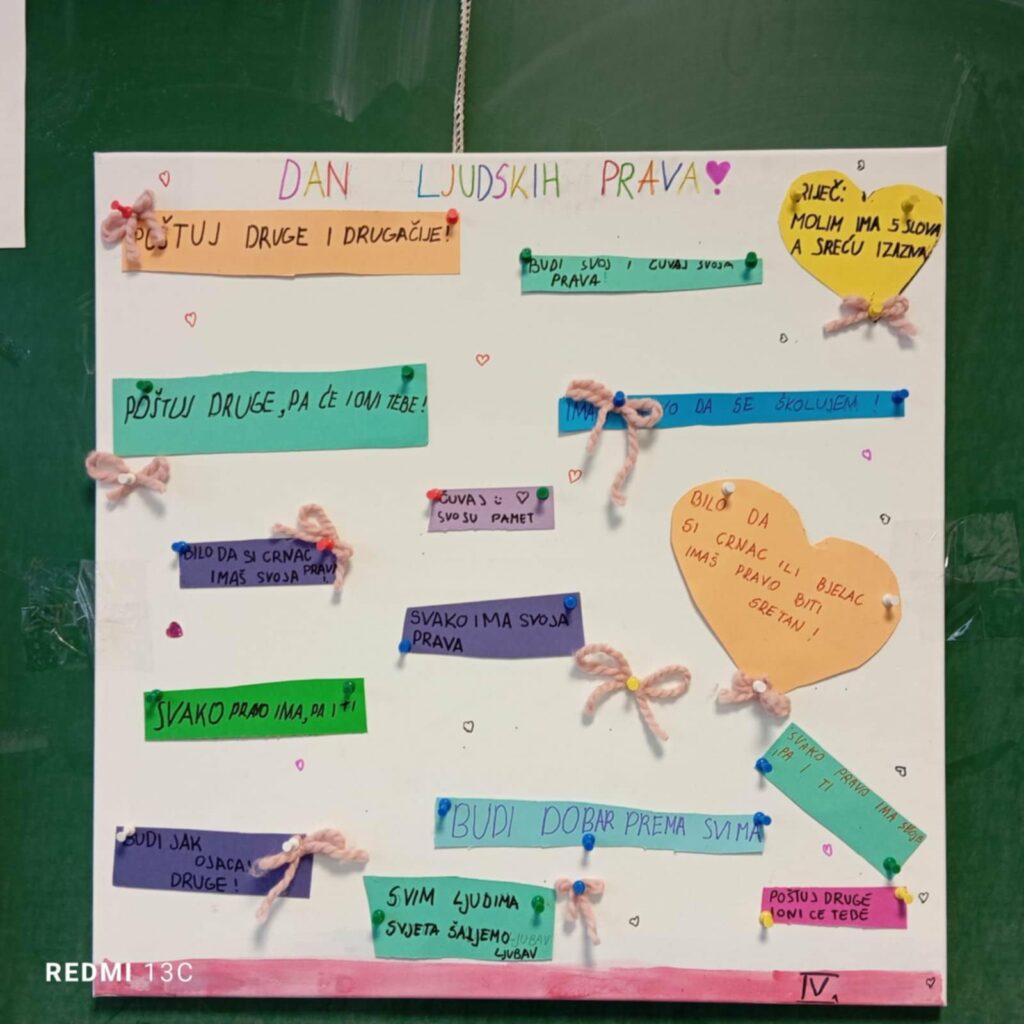 DAN LJUDSKIH PRAVA
POŠTUJ DRUGE I DRUGAČIJE!
BUDI SVOJ I ČUVAJ SVOJA
PRAVA!
RIJEČ:
MOLIM IMA 5 SLOVA
A SREĆU IZAZIVA
POŠTUJ DRUGE, PA ĆE I ONI TEBE!
DA SE ŠKOLUJEM !
ČUVAJ
SVOJU PAMET
BILO DA SI CRNAC
IMAŠ SVOJA PRAVA
BILO DA
SI CRNAC ILI BJELAC
IMAŠ PRAVO BITI
SRETAN !
SVAKO IMA SVOJA
PRAVA
SVAKO PRAVO IMA, PA I TI
SVAKO PRAVO IMA SVOJE
,PA I TI
BUDI DOBAR PREMA SVIMA
BUDI JAK
OJAČAJ
DRUGE !
SVIM LJUDIMA
SVJETA ŠALJEMO
LJUBAV
POŠTUJ DRUGE
I ONI ĆE TEBE
IV.
REDMI 13C